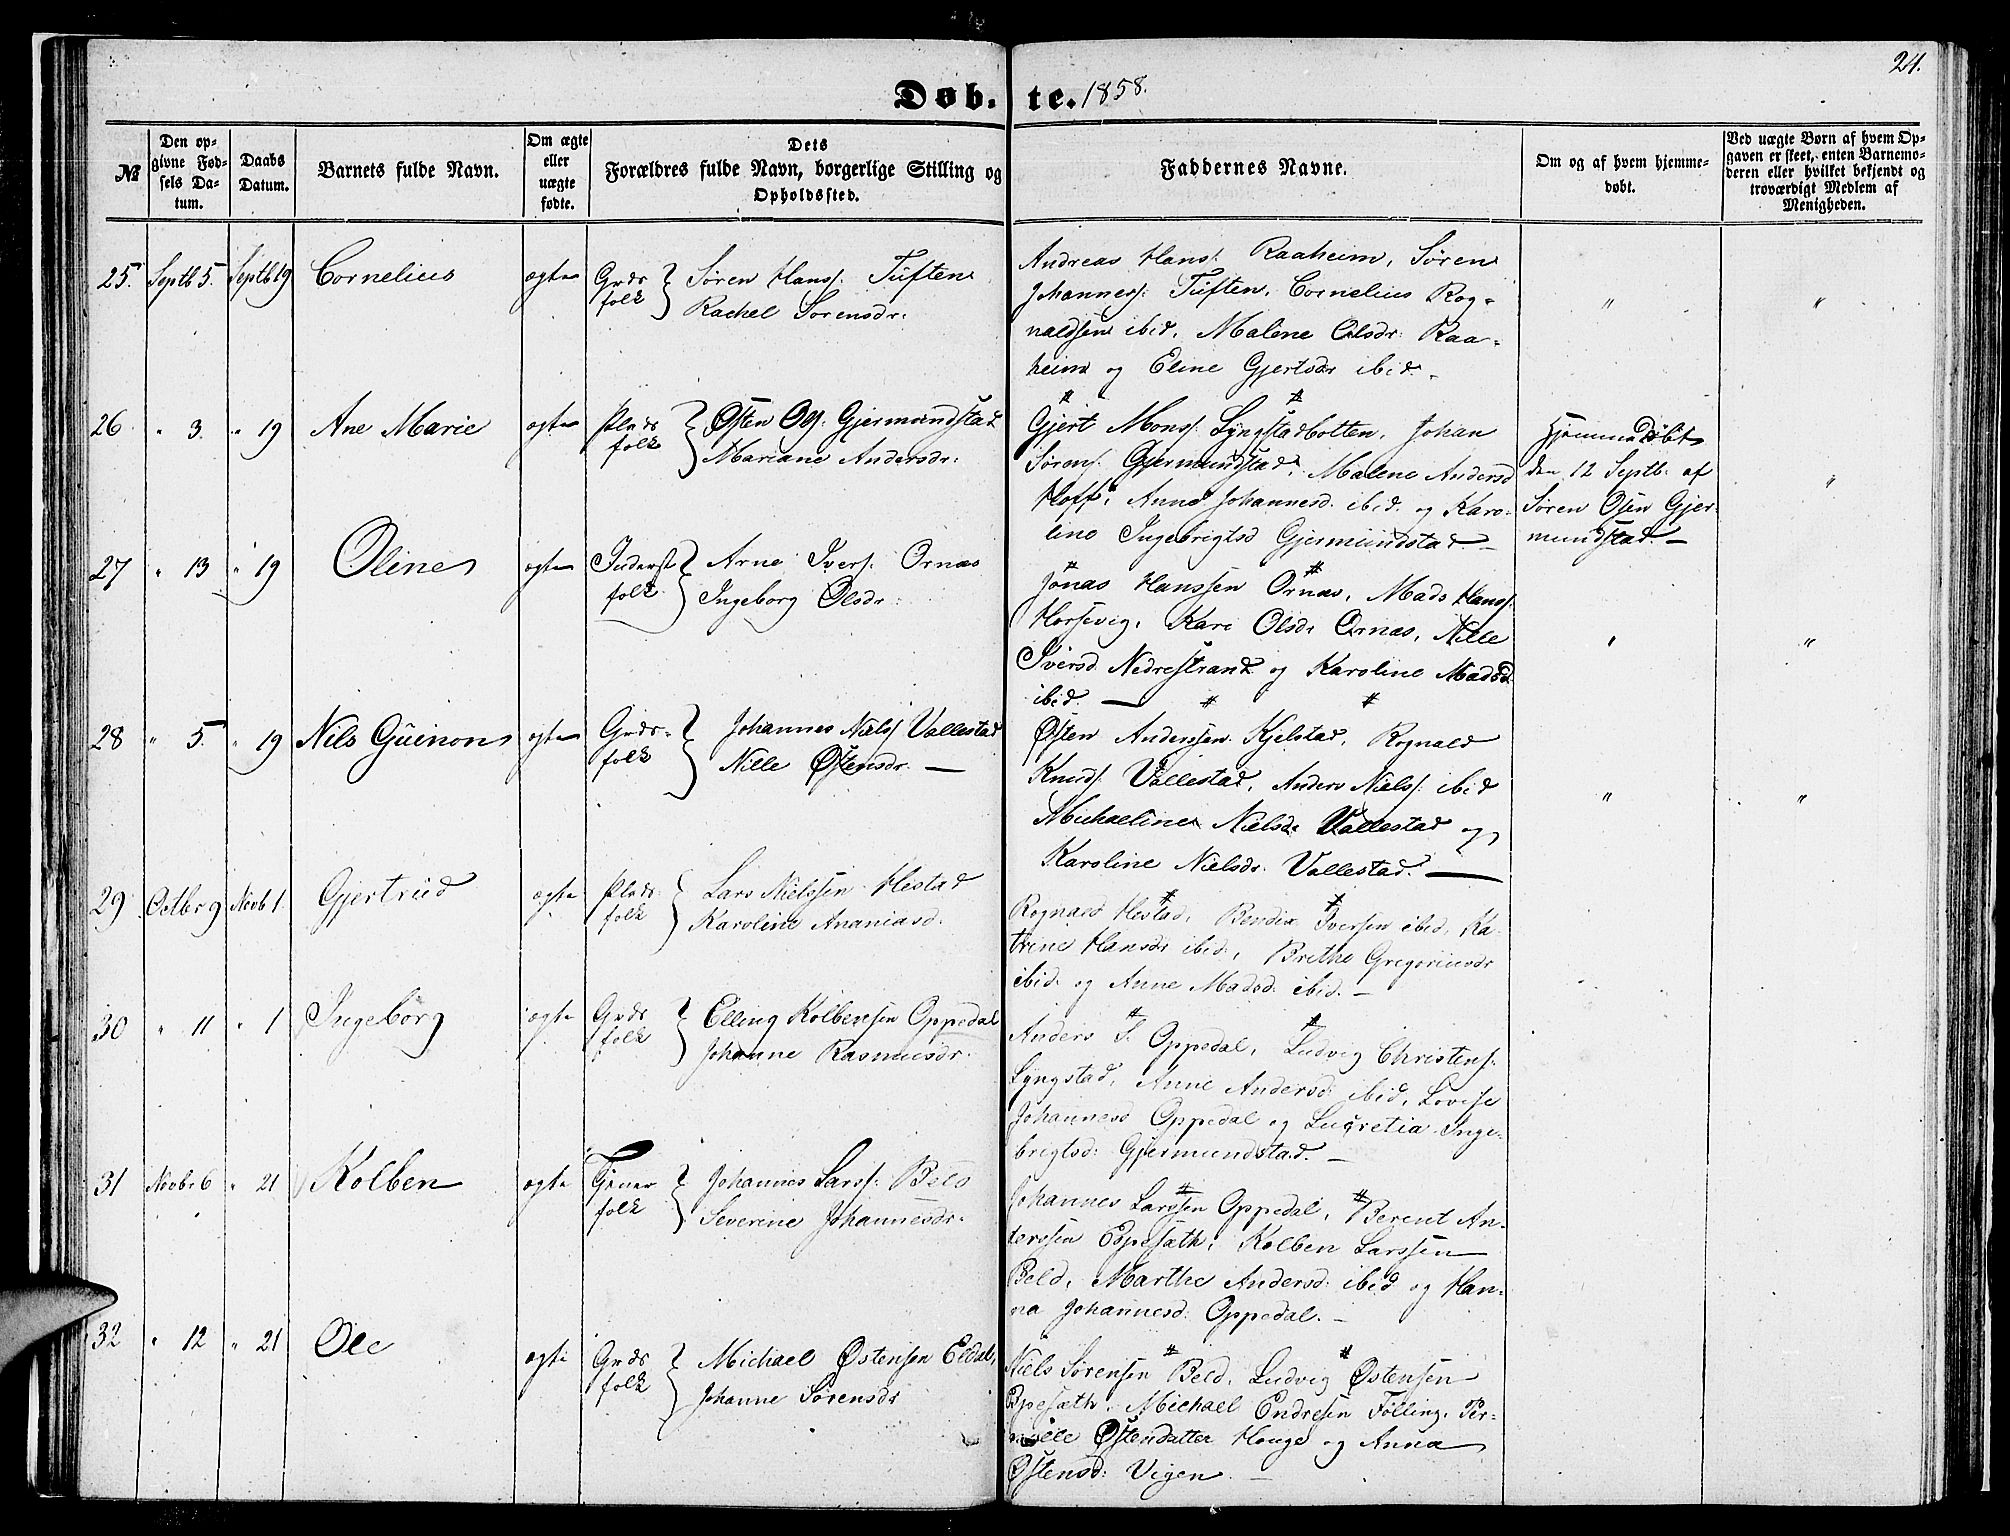 24.
Døb.te. 1858.
№
Den opgivne Fødsels Datum.
Daabs Datum.
Barnets fulde Navn.
Om ægte eller uægte fødte.
Dets Forældres fulde Navn, borgerlige Stilling og Opholdssted.
Faddernes Navne.
Om og af hvem hjemmedøbt.
Ved uægte Børn af hvem Opgaven er skeet, enten Barnemoderen eller hvilket bekjendt og troværdigt Medlem af Menigheden.
25. Septb 5. Septb 19 Cornelius ægte Grds folk } Søren Hanss. Tuften
Rachel Sørensdr.
Andreas Hans. Raaheim, Søren
Johanness: Tuften, Cornelius Rog-
naldsen ibid, Malene Olsdr. Raa-
heim og Eline Gjertsdr ibid.
" "
26 " 3. " 19 Ane Marie ægte Plads folk } Østen Ols. Gjermundstad
Mariane Andersdr.
Gjert Mons. Lyngstadbotten, Johan
Sørens. Gjermundstad, Malene Andersd
Hoff, Anne Johannesd. ibid. og Karo-
line Ingebrigtsd Gjermundstad. —
Hjemmedøbt
den 12 Septb. af
Søren Osen Gjer-
mundstad. —
"
27 " 13 " 19 Oline ægte Inderst folk } Arne Ivers. Ornæs
Ingeborg Olsdr.
Jonas Hanssen Ornæs, Mads Hanss.
Horsevig, Kari Olsdr Ornæs, Nille
Iversd. Nedrestrand og Karoline Madsd
ibid. —
" "
28 " 5. " 19 Nils Guinon ægte Grds- folk } Johannes Niels. Vallestad
Nille Østensdr. —
Østen Anderssen Kjelstad, Rognald
Knuds. Vallestad, Anders Niels. ibid
Michaeline Nielsdr Vallestad og
Karoline Nielsdr. Vallestad. —
" "
29 Octbr 9 Novb 1. Gjertrud ægte Plads folk } Lars Nielssen Hestad
Karoline Ananiasd.
Rognald Hestad, Bendix Iversen ibid, Ka-
trine Hansdr ibid, Brithe Gregoriusdr
ibid. og Anne Madsd. ibid. —
30 " 11 " 1 Ingeborg ægte Grds folk } Elling Kolbensen Oppedal
Johanne Rasmusdr.
Anders S. Oppedal, Ludvig Christens.
Lyngstad, Anne Andersd. ibid, Lovise
Johannesd Oppedal og Lucretia Inge-
brigtsd. Gjermundstad. —
31 Novbr 6 " 21 Kolben ægte Tjener folk } Johannes Larss. Beld
Severine Johannesdr.
Johannes Larssen Oppedal, Berent An-
derssen Espesæth, Kolben Larssen
Beld, Marthe Andersd. ibid og Han-
na Johannesd. Oppedal. —
32 " 12 " 21 Ole ægte Grds folk } Michael Østensen Eldal,
Johanne Sørensdr
Niels Sørensen Beld, Ludvig Østensen
Espesæth, Michael Endresen Følling, Per-
nille Østendatter Houge og Anna
Østensd. Vigen. —